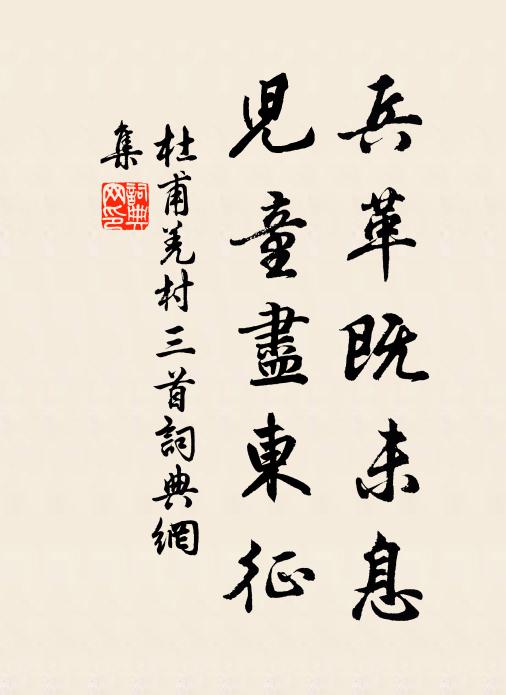 兵革既未息
兒童盡東征
杜甫羌村三首詞典網
集
詞典网印